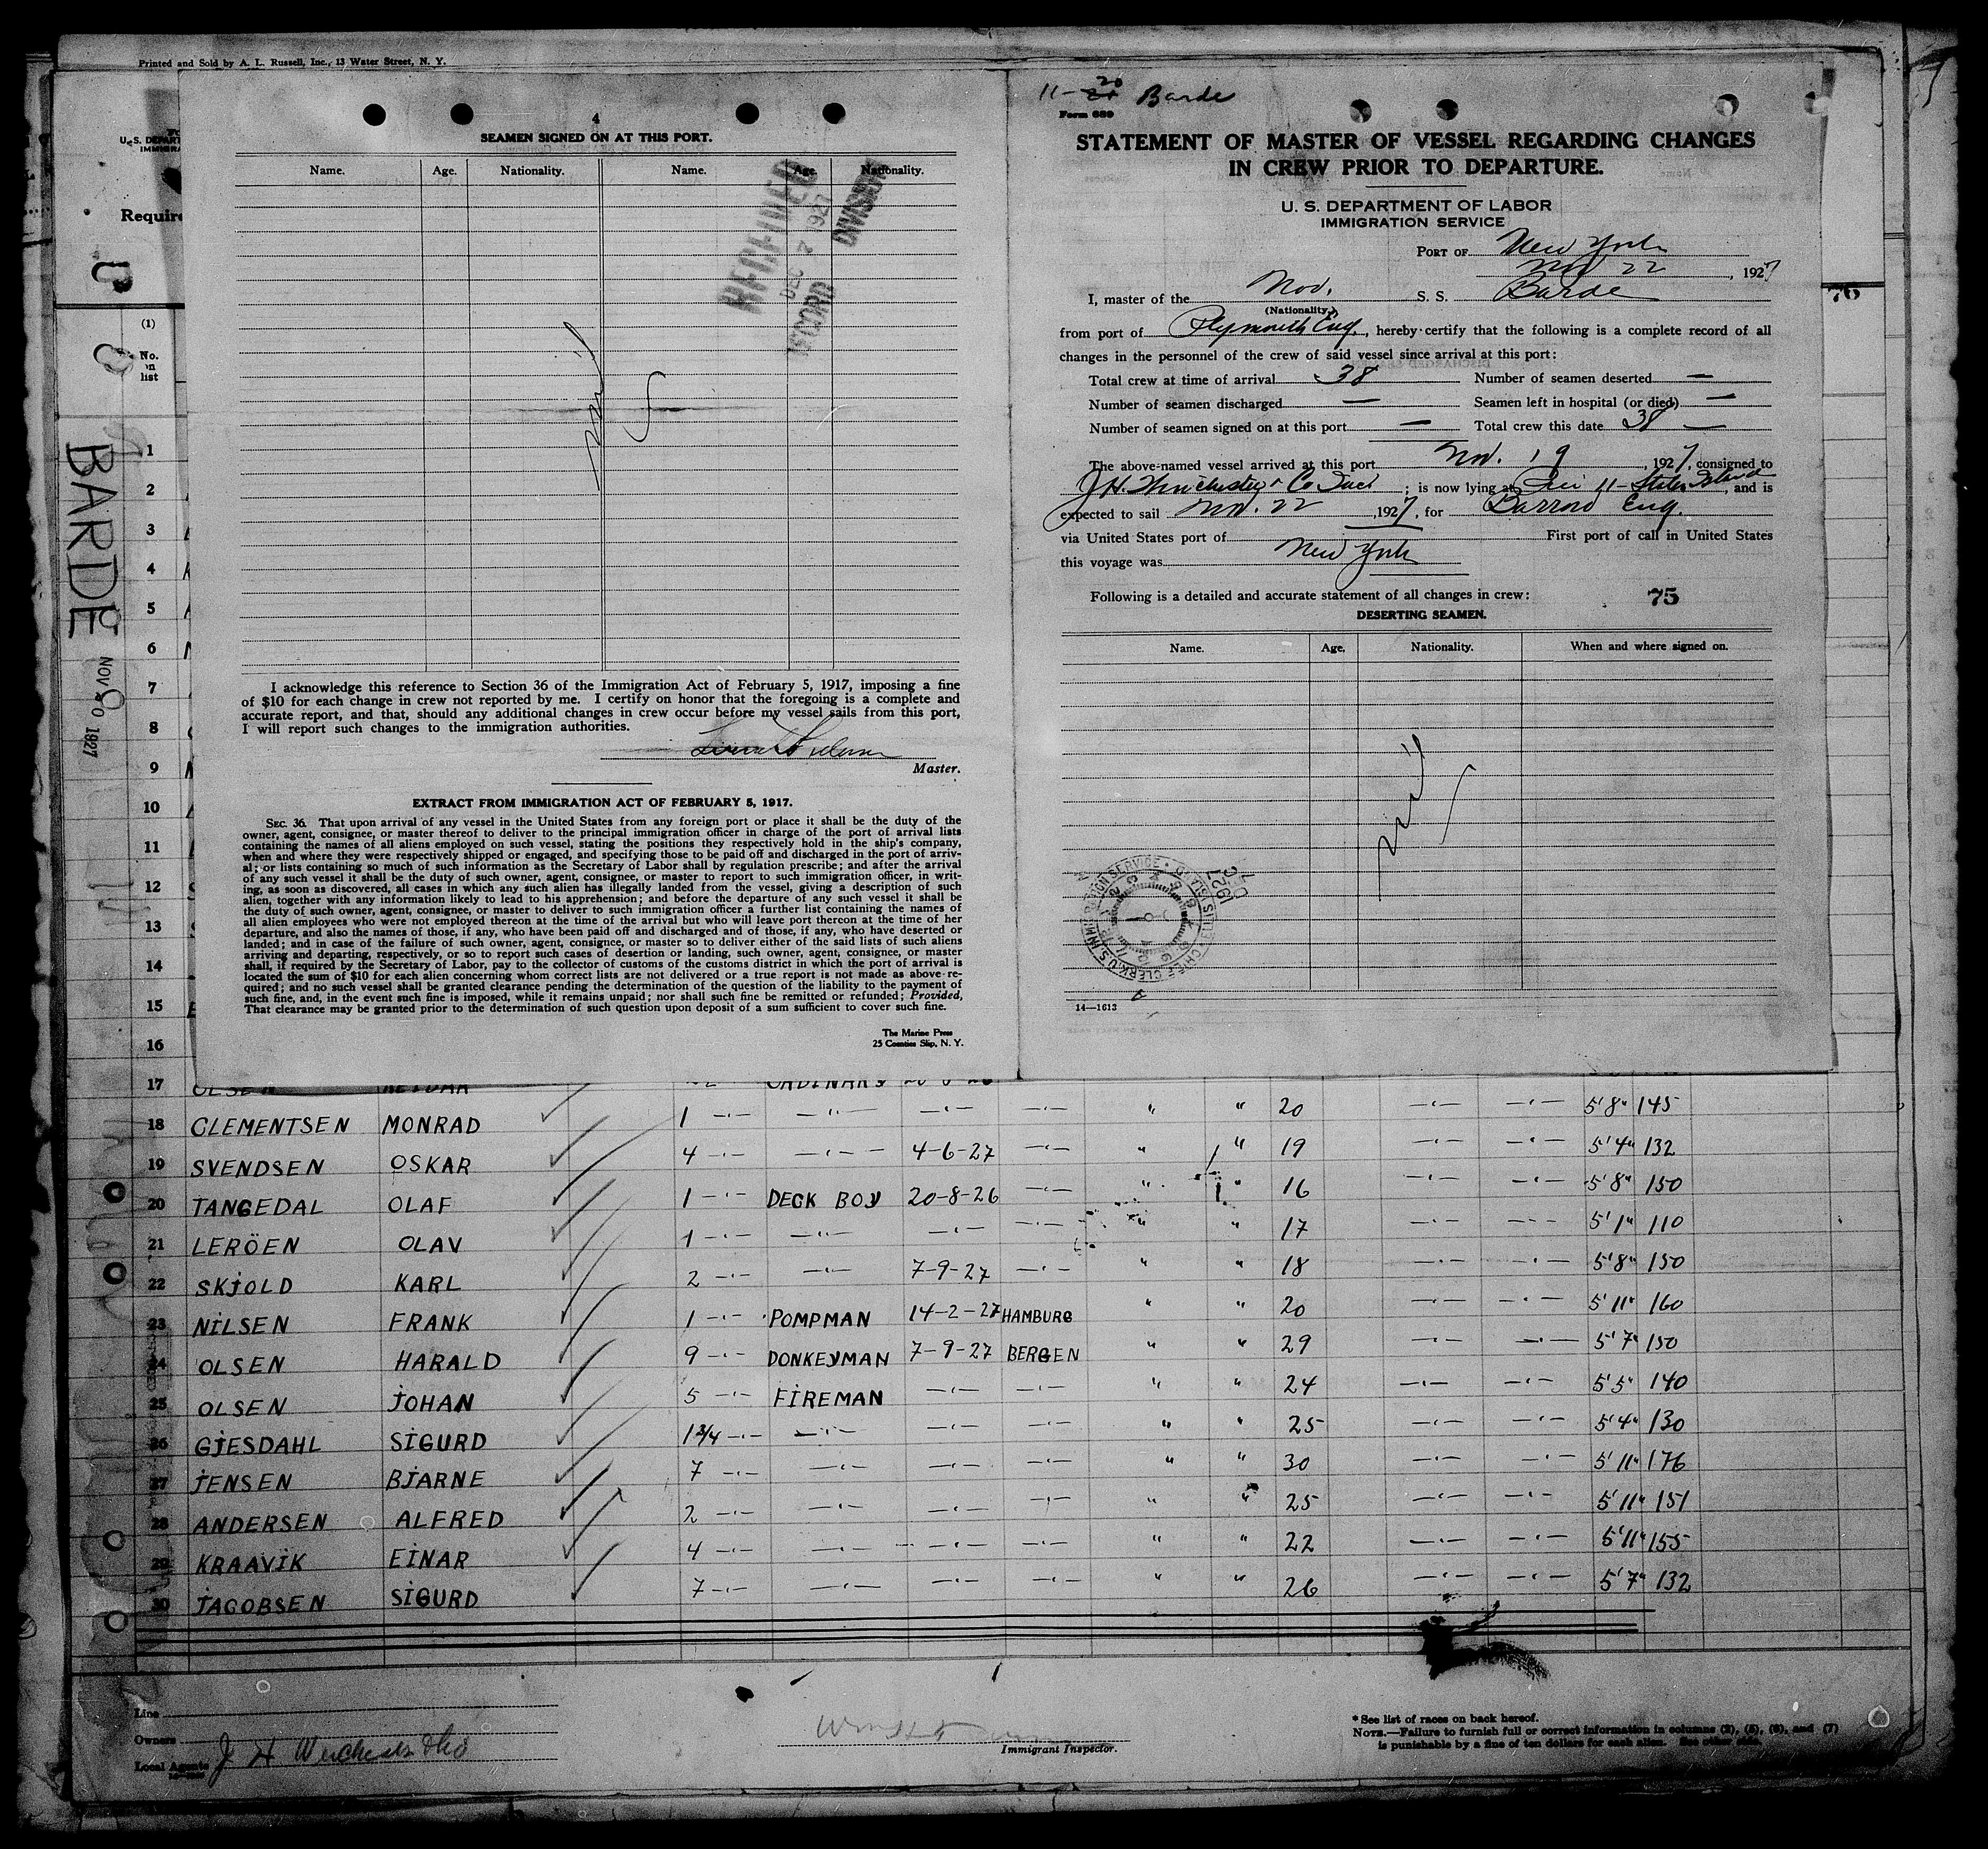 Printed and Sold by A. L. Russell, Inc., 13 Water Street, N. Y.
U. S. DEPART
IMMIGRA
Require
(1)
No.
on
list
BARDE
NOV 20 1927
4
SEAMEN SIGNED ON AT THIS PORT.
Name. Age. Nationality. Name. Age. Nationality.
RECEIVED
DEC 7 1927
RECORD DIVISION
nil
I acknowledge this reference to Section 36 of the Immigration Act of February 5, 1917, imposing a fine
of $10 for each change in crew not reported by me. I certify on honor that the foregoing is a complete and
accurate report, and that, should any additional changes in crew occur before my vessel sails from this port,
I will report such changes to the immigration authorities.
Master.
EXTRACT FROM IMMIGRATION ACT OF FEBRUARY 5, 1917.
SEC. 36. That upon arrival of any vessel in the United States from any foreign port or place it shall be the duty of the
owner, agent, consignee, or master thereof to deliver to the principal immigration officer in charge of the port of arrival lists
containing the names of all aliens employed on such vessel, stating the positions they respectively hold in the ship's company,
when and where they were respectively shipped or engaged, and specifying those to be paid off and discharged in the port of arriv-
al; or lists containing so much of such information as the Secretary of Labor shall by regulation prescribe; and after the arrival
of any such vessel it shall be the duty of such owner, agent, consignee, or master to report to such immigration officer, in writ-
ing, as soon as discovered, all cases in which any such alien has illegally landed from the vessel, giving a description of such
alien, together with any information likely to lead to his apprehension; and before the departure of any such vessel it shall be
the duty of such owner, agent, consignee, or master to deliver to such immigration officer a further list containing the names of
all alien employees who were not employed thereon at the time of the arrival but who will leave port thereon at the time of her
departure, and also the names of those, if any, who have been paid off and discharged and of those, if any, who have deserted or
landed; and in case of the failure of such owner, agent, consignee, or master so to deliver either of the said lists of such aliens
arriving and departing, respectively, or so to report such cases of desertion or landing, such owner, agent, consignee, or master
shall, if required by the Secretary of Labor, pay to the collector of customs of the customs district in which the port of arrival is
located the sum of $10 for each alien concerning whom correct lists are not delivered or a true report is not made as above re-
quired; and no such vessel shall be granted clearance pending the determination of the question of the liability to the payment of
such fine, and, in the event such fine is imposed, while it remains unpaid; nor shall such fine be remitted or refunded; Provided,
That clearance may be granted prior to the determination of such question upon deposit of a sum sufficient to cover such fine.
The Marine Press
25 Coenties Slip, N. Y.
11-20 Barde
Form 689
STATEMENT OF MASTER OF VESSEL REGARDING CHANGES
IN CREW PRIOR TO DEPARTURE.
U. S. DEPARTMENT OF LABOR
IMMIGRATION SERVICE
PORT OF New York
Nov 22, 1927
I, master of the Nor. S. S. Barde
(Nationality.)
from port of Plymouth Eng., hereby certify that the following is a complete record of all
changes in the personnel of the crew of said vessel since arrival at this port:
Total crew at time of arrival 38 Number of seamen deserted —
Number of seamen discharged — Seamen left in hospital (or died) —
Number of seamen signed on at this port — Total crew this date 38 —
The above-named vessel arrived at this port Nov. 19, 1927, consigned to
J.H. Winchester & Co Inc; is now lying at Pier 11 - Staten Island, and is
expected to sail Nov. 22, 1927, for Barrow Eng.
via United States port of First port of call in United States
this voyage was New York
Following is a detailed and accurate statement of all changes in crew: 75
DESERTING SEAMEN.
Name. Age. Nationality. When and where signed on.
nil
DEC 7 1927
14—1613
76
1
2
3
4
5
6
7
8
9
10
11
12
13
14
15
16
17 OLSEN REIDAR ORDINARY
18 CLEMENTSEN MONRAD 1 -"- -"- -"- -"- " " 20 -"- -"- 5'8" 145
19 SVENDSEN OSKAR 4 -"- -"- 4-6-27 -"- " " 19 -"- -"- 5'4" 132
20 TANGEDAL OLAF 1 -"- DECK BOY 20-8-26 -"- " " 16 -"- -"- 5'8" 150
21 LERÖEN OLAV 1 -"- -"- -"- -"- " " 17 -"- -"- 5'1" 110
22 SKJOLD KARL 2 -"- -"- 7-9-27 -"- " " 18 -"- -"- 5'8" 150
23 NILSEN FRANK 1 -"- POMPMAN 14-2-27 HAMBURG " " 20 -"- -"- 5'11" 160
24 OLSEN HARALD 9 -"- DONKEYMAN 7-9-27 BERGEN " " 29 -"- -"- 5'7" 150
25 OLSEN JOHAN 5 -"- FIREMAN -"- -"- " " 24 -"- -"- 5'5" 140
26 GJESDAHL SIGURD 1¾ -"- -"- -"- -"- " " 25 -"- -"- 5'4" 130
27 JENSEN BJARNE 7 -"- -"- -"- -"- " " 30 -"- -"- 5'11" 176
28 ANDERSEN ALFRED 2 -"- -"- -"- -"- " " 25 -"- -"- 5'11" 151
29 KRAAVIK EINAR 4 -"- -"- -"- -"- " " 22 -"- -"- 5'11" 155
30 JACOBSEN SIGURD 7 -"- -"- -"- -"- " " 26 -"- -"- 5'7" 132
Line
Owners
Local Agents J H Winchester & Co
Immigrant Inspector.
* See list of races on back hereof.
NOTE.—Failure to furnish full or correct information in columns (2), (5), (6), and (7)
is punishable by a fine of ten dollars for each alien. See other side.